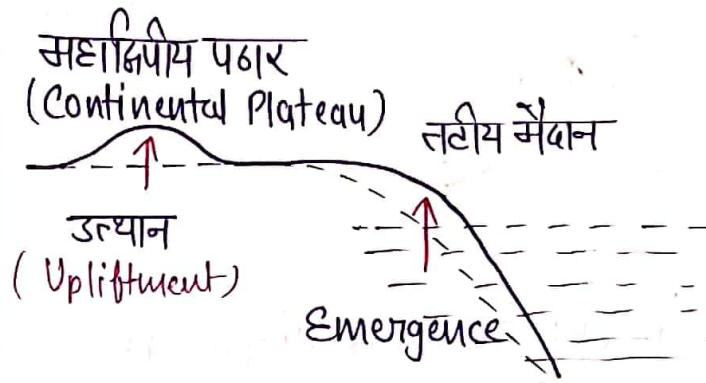 महाद्विपीय पठार
(Continental Plateau)
तटीय मैदान
उत्थान
(Upliftment)
Emergence